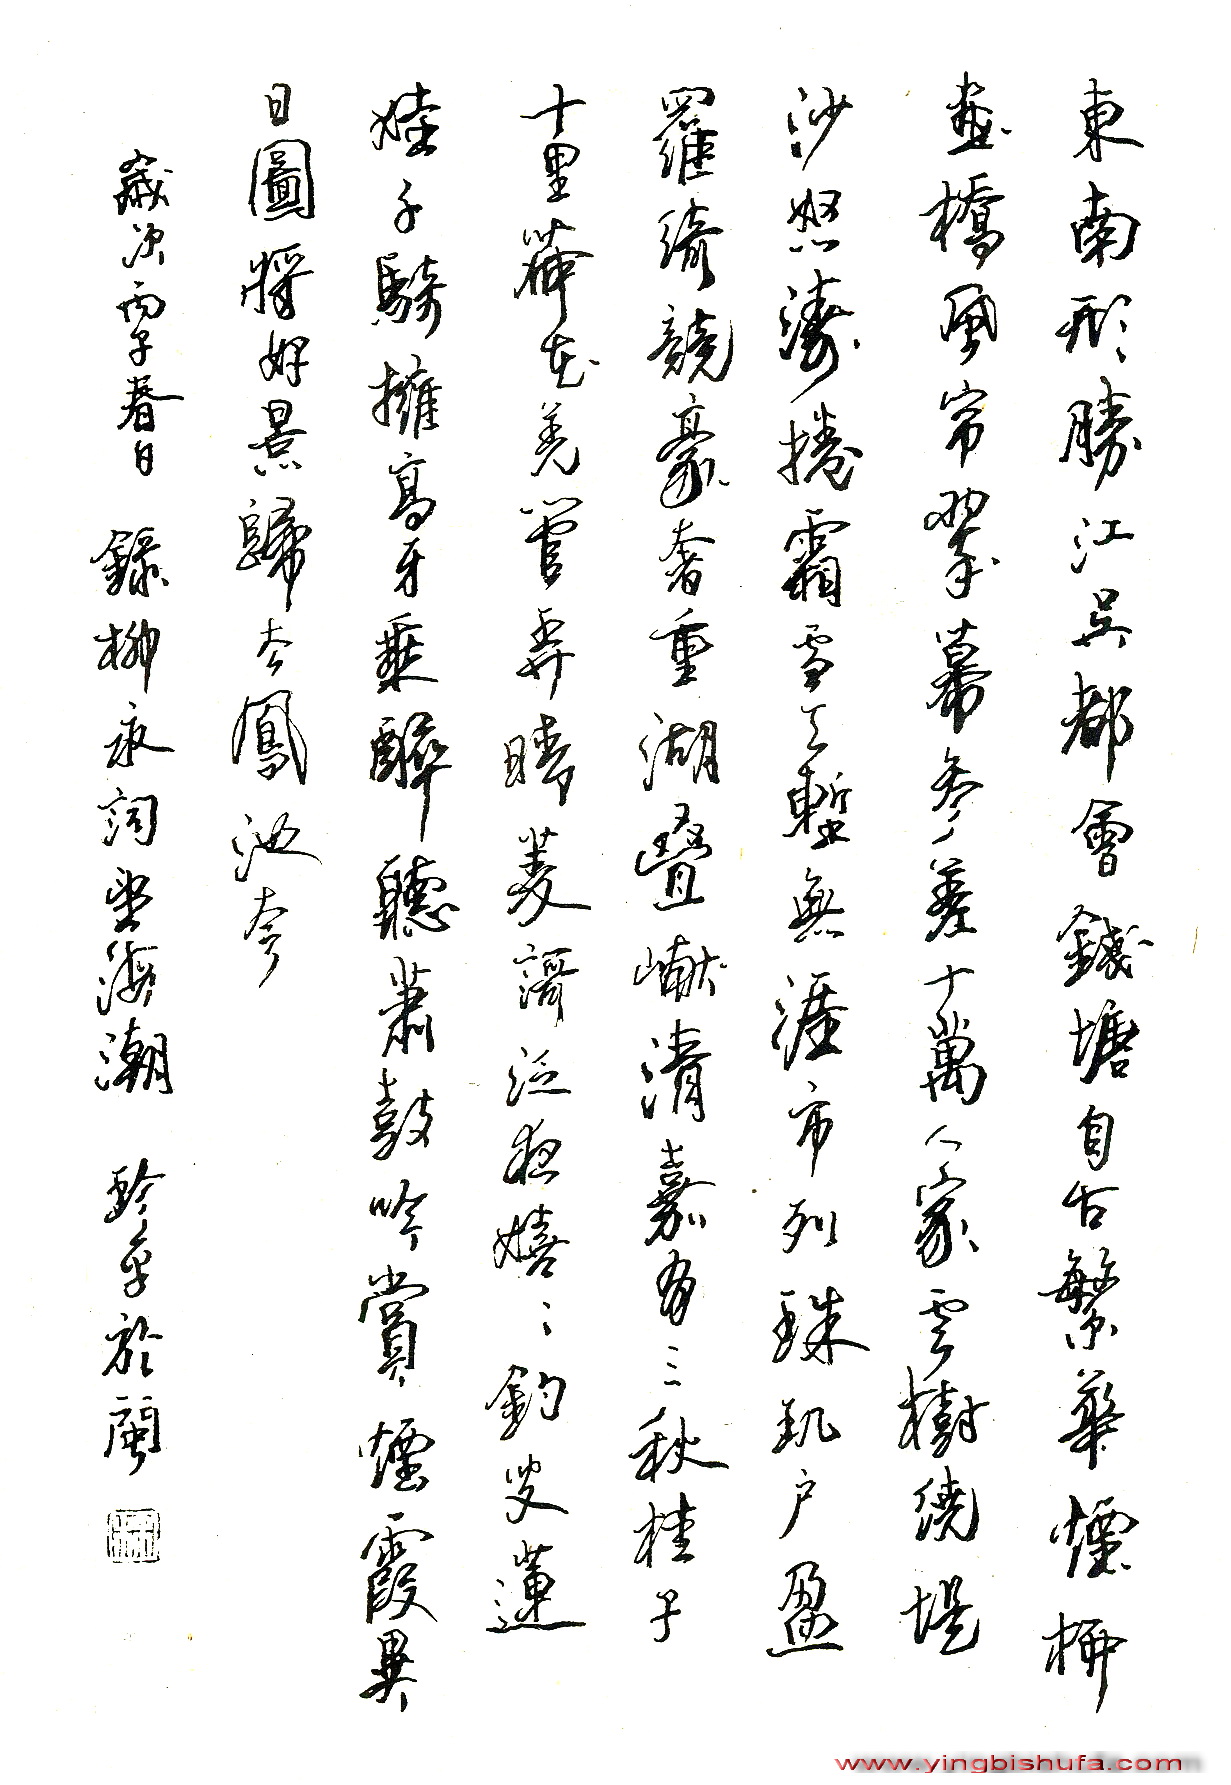 東南形勝江吳都會錢塘自古繁華煙柳
畫橋風帘翠幕參差十萬人家雲樹繞堤
沙怒濤捲霜雪天塹無涯市列珠璣戶盈
羅綺競豪奢重湖疊巘清嘉有三秋桂子
十里荷花羌管弄晴菱謌泛夜嬉〻釣叟蓮
娃千騎擁高牙乘醉聽蕭鼓吟賞煙霞異
日圖將好景歸去鳳池夸
歲次丙子春日 錄柳永詞望海潮 於閩
www.yingbishufa.com